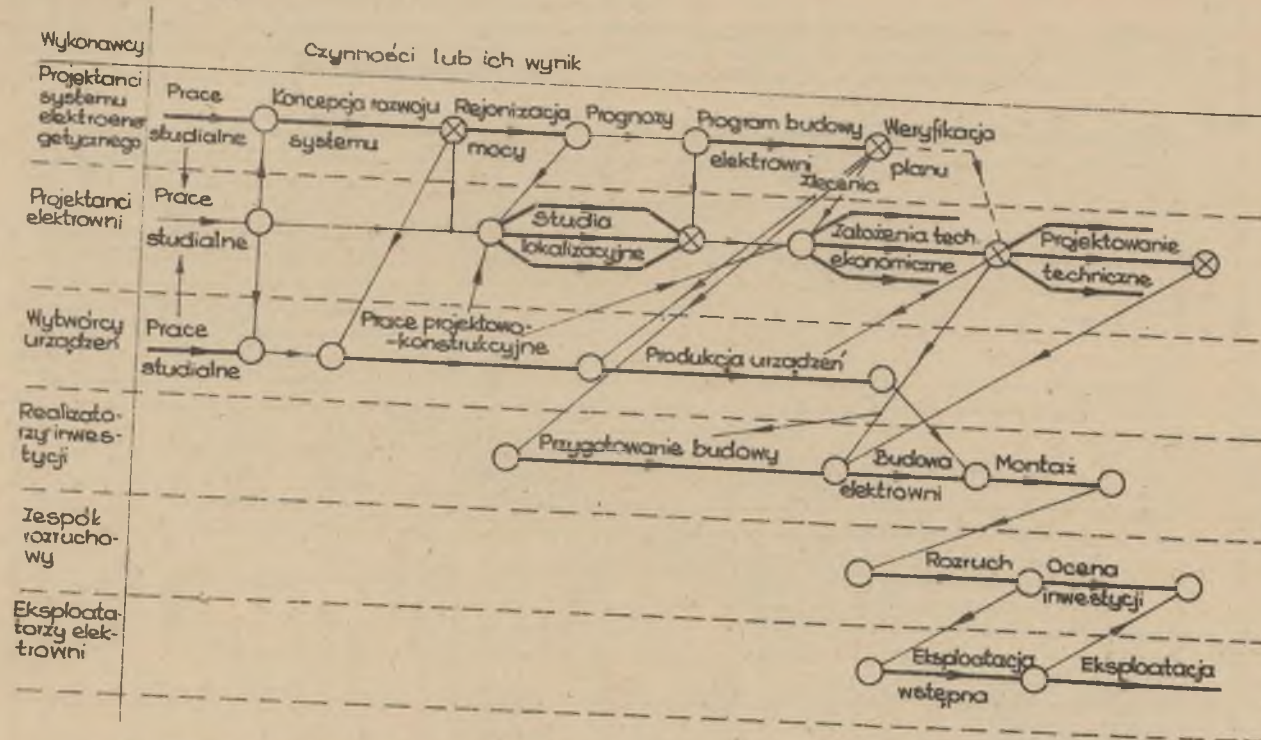 Wykonawcy
Czynności lub ich wynik
Projektanci
systemu
elektroener
getycznego
Prace
studialne
Koncepcja rozwoju
systemu
Rejonizacja
mocy
Prognozy
Program budowy
elektrowni
Weryfikacja
planu
Zlecenia
Projektanci
elektrowni
Prace
studialne
Studia
lokalizacyjne
Założenia tech.
ekonomiczne
Projektowanie
techniczne
Wytwórcy
urządzeń
Prace
studialne
Prace projektowo-
-konstrukcyjne
Produkcja urządzeń
Realizato-
rzy inwes-
tycji
Przygotowanie budowy
Budowa
elektrowni
Montaż
Zespół
rozrucho-
wy
Rozruch
Ocena
inwestycji
Eksploata-
torzy elek-
trowni
Eksploatacja
wstępna
Eksploatacja